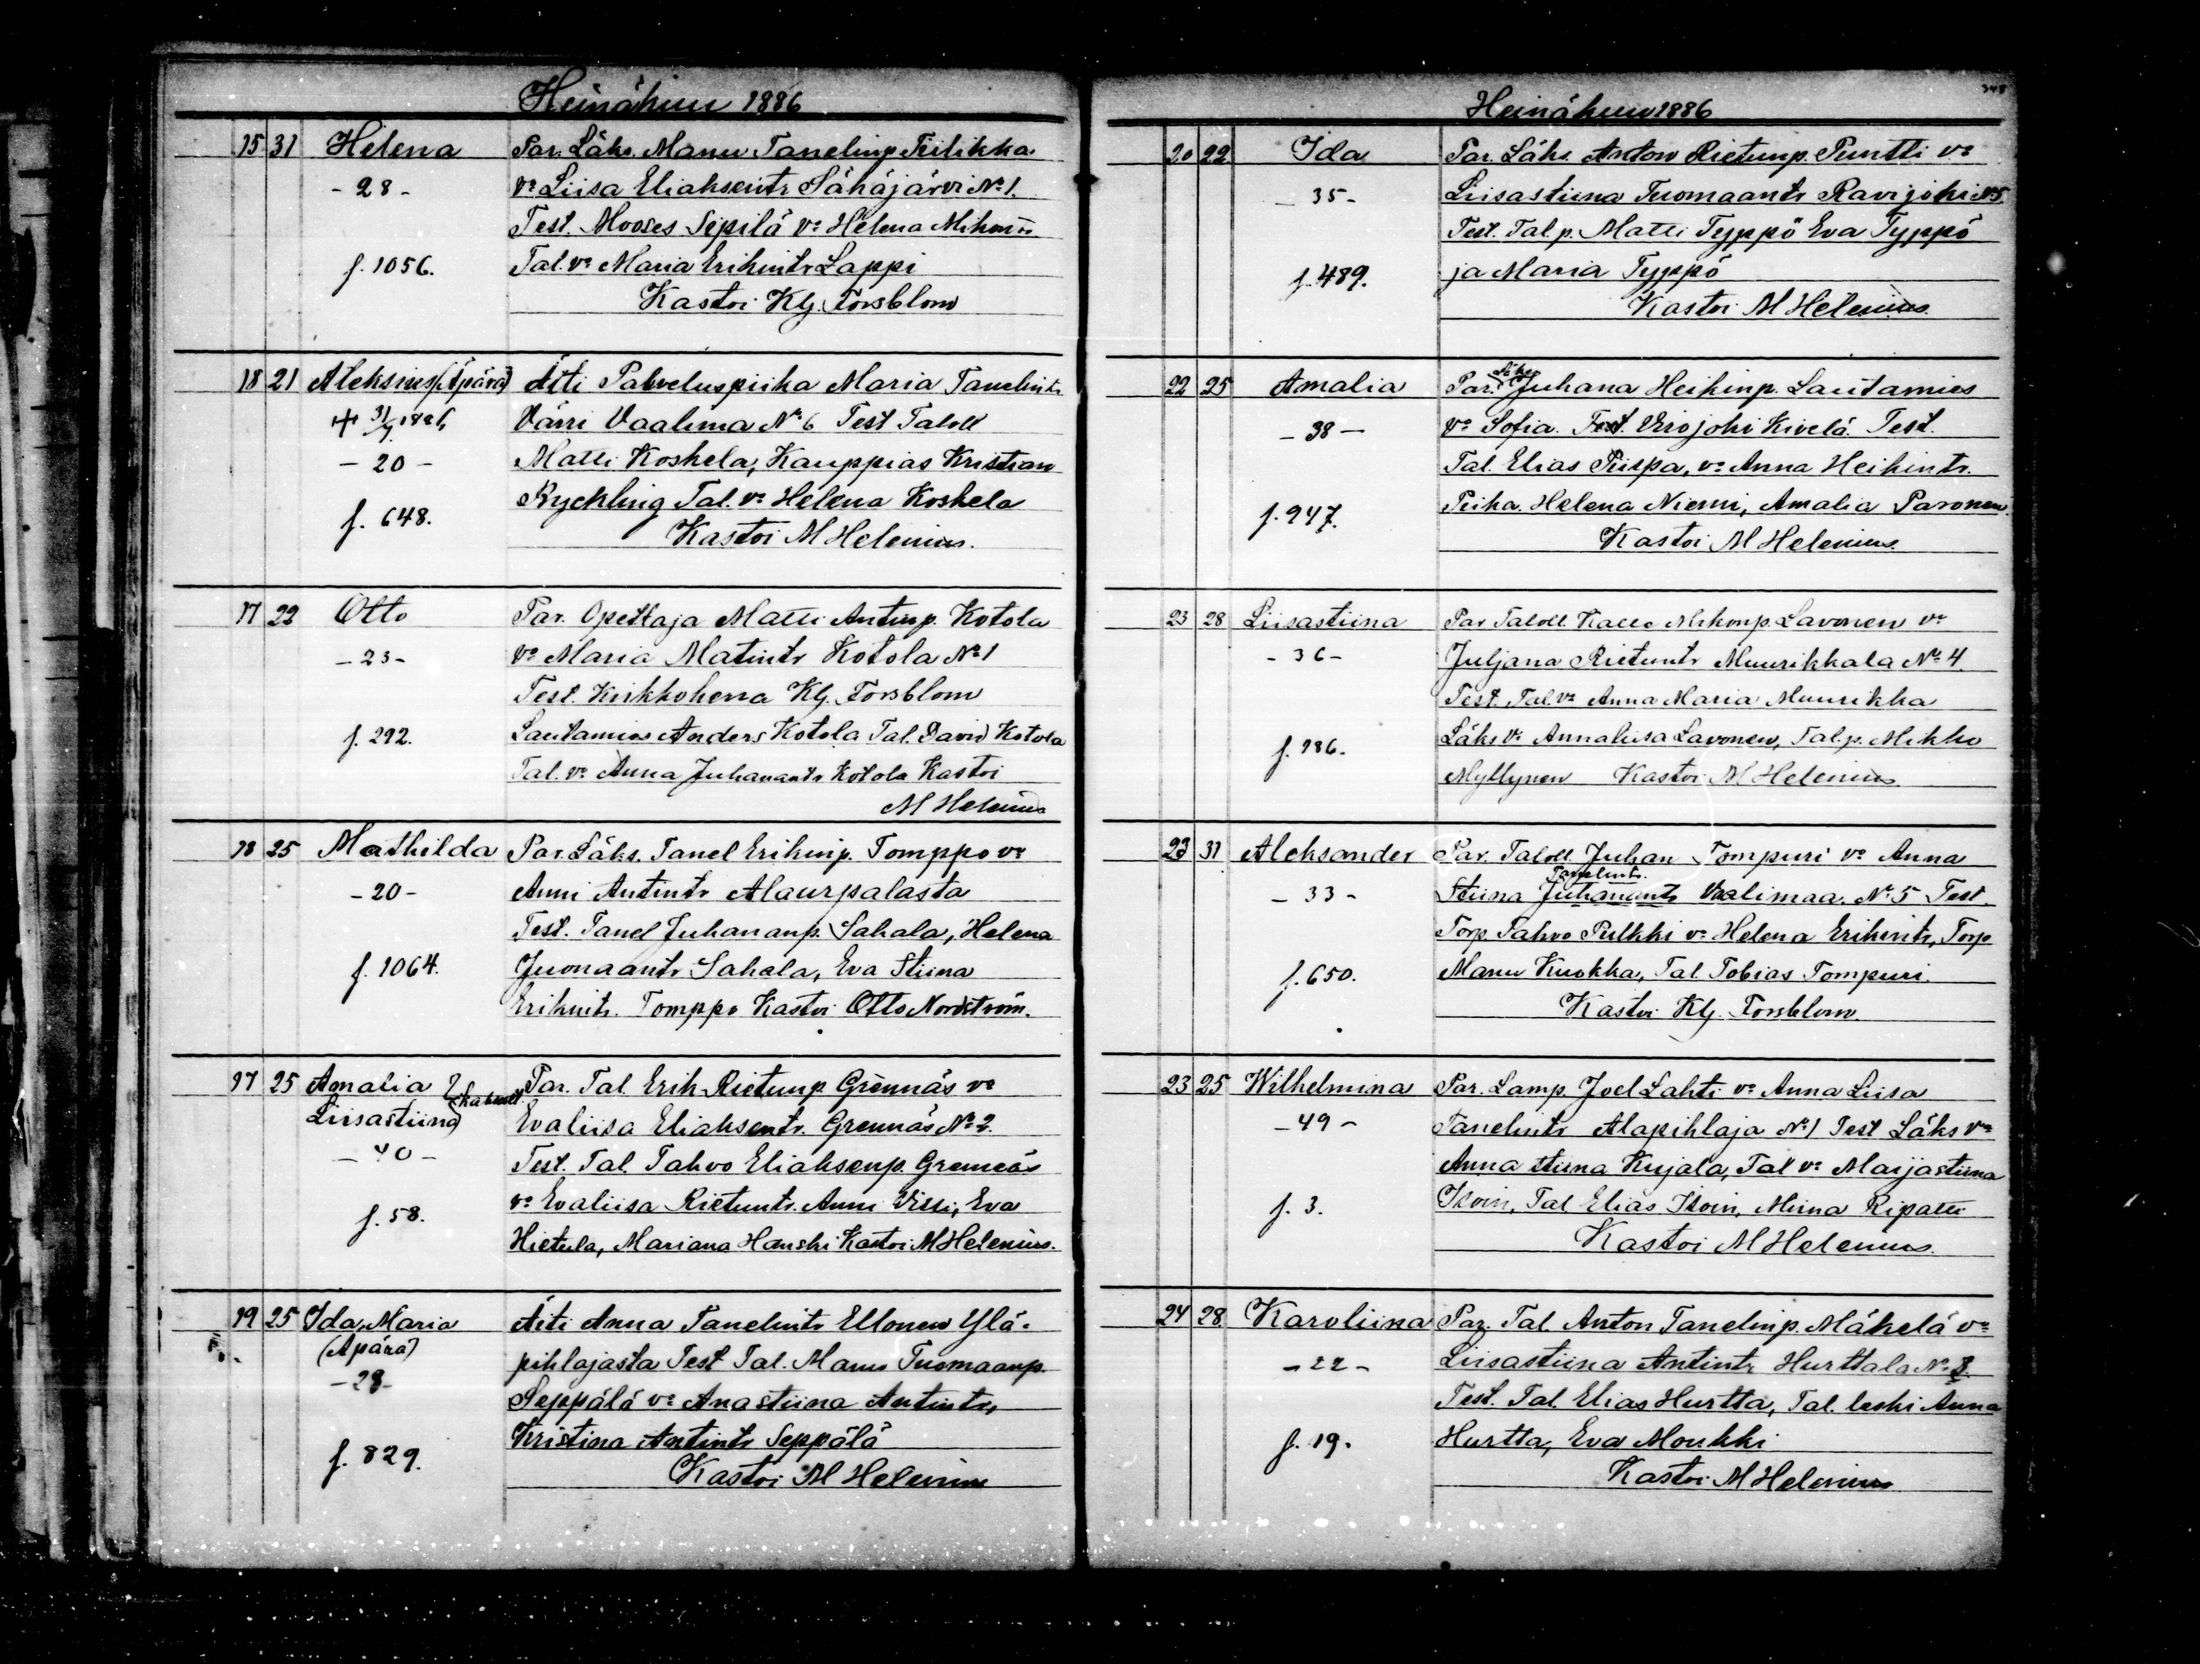 Heinäkuu 1886
15 31 Helena Par. Läks. Manu Tanelinp. Teilikka
- 28 - vo Liisa Eliaksentr Sähäjärvi No 1.
Test. Mooses Sepilä vo Helena Mikontr
f. 1056. Tal. vo Maria Erikintr Lappi
Kastoi Klj. Forsblom
18 21 Aleksius (Äpärä) Äiti Palveluspiika Maria Tanelintr
+ 31/7 1886 Värri Vaalima No 6 Test Taloll
- 20 - Matti Koskela, Kauppias Kristian
f. 648. Ryckling Tal. vo Helena Koskela
Kastoi M Helenius.
17 22 Otto Par. Opettaja Matti Antinp. Kotola
- 23 - vo Maria Matintr Kotola No 1
Test. Kirkkoherra Klj. Forsblom
f. 292. Lautamies Anders Kotola Tal. David Kotola
Tal. vo Anna Juhanantr Kotola Kastoi
M Helenius
18 25 Mathilda Par. Läks. Tanel Erikinp. Tomppo vo
- 20 - Anni Antintr Alaurpalasta
Test. Tanel Juhananp. Sahala, Helena
f. 1064. Juonaantr Sahala, Eva Stiina
Erikintr. Tomppo Kastoi Otto Nordström.
17 25 Amalia } kaksoset. Par. Tal. Erik Rietunp. Grennäs vo
Liisastiina Evaliisa Eliaksentr. Grennäs No 2.
- 40 - Test. Tal. Tahvo Eliaksenp. Grennäs
f. 58. vo Evaliisa Rietuntr. Anni Vissi, Eva
Hietala, Mariana Hanski Kastoi M Helenius.
19 25 Ida Maria Äiti Anna Tanelintr Ellonen Ylä-
(Äpärä) pihlajasta Test Tal. Manu Tuomaanp.
- 28 - Seppälä vo Anastiina Antintr,
f. 829. Kristina Antintr Seppälä
Kastoi M Helenius
348
Heinäkuu 1886
20 22 Ida Par. Läks. Anton Rietunp. Puntti vo
- 35 - Liisastiina Tuomaantr Ravijoki No 5.
Test. Tal. p. Matti Typpö Eva Typpö
f. 489. ja Maria Typpö
Kastoi M Helenius.
22 25 Amalia Par. Läks. Juhana Heikinp. Lautamies
- 38 - vo Sofia. Test. Virojoki Kivelä. Test.
Tal. Elias Piispa, vo Anna Heikintr.
f. 947. Piika Helena Niemi, Amalia Paronen.
Kastoi M Helenius.
23 28 Liisastiina Par Taloll. Kalle Mikonp. Lavonen vo
- 36 - Juljana Rietuntr Muurikkala No 4.
Test. Tal. vo Anna Maria Muurikka
f. 286. Läks vo Annaliisa Lavonen, Tal. p. Mikko
Myllynen Kastoi M Helenius.
23 31 Aleksander Par. Taloll. Juhan Tompuri vo Anna
Tanelintr.
- 33 - Stiina Juhanantr Vaalimaa. No 5 Test.
Torp. Tahvo Pulkki vo Helena Erikintr, Torp
f. 650. Manu Kuokka, Tal. Tobias Tompuri.
Kastoi Klj. Forsblom.
23 25 Wilhelmina Par. Lamp. Joel Lahti vo Anna Liisa
- 49 - Tanelintr Alapihlaja No 1 Test Läks vo
Anna Stiina Kujala, Tal vo Marjastiina
f. 3. Isoin, Tal Elias Isoin, Miina Ripatti
Kastoi M Helenius.
24 28 Karoliina Par. Tal. Anton Tanelinp. Mäkelä vo
- 22 - Liisastiina Antintr Hurttala No 8.
Test. Tal. Elias Hurtta, Tal. leski Anna
f. 19. Hurtta, Eva Moukki
Kastoi M Helenius